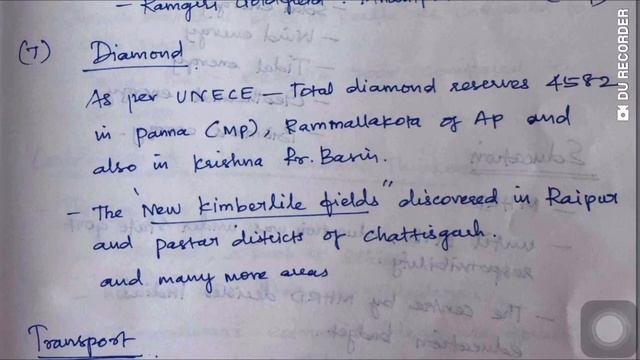 - Ramgiri Goldfield :
(7) Diamond.
As per UNECE - Total diamond reserves 4582
in panna (MP), Rammallakota of AP and
also in Krishna Rr. Basin.
- The "New Kimberlile fields" discovered in Raipur
and pastar districts of Chattisgarh.
and many more areas
Transport
DU RECORDER